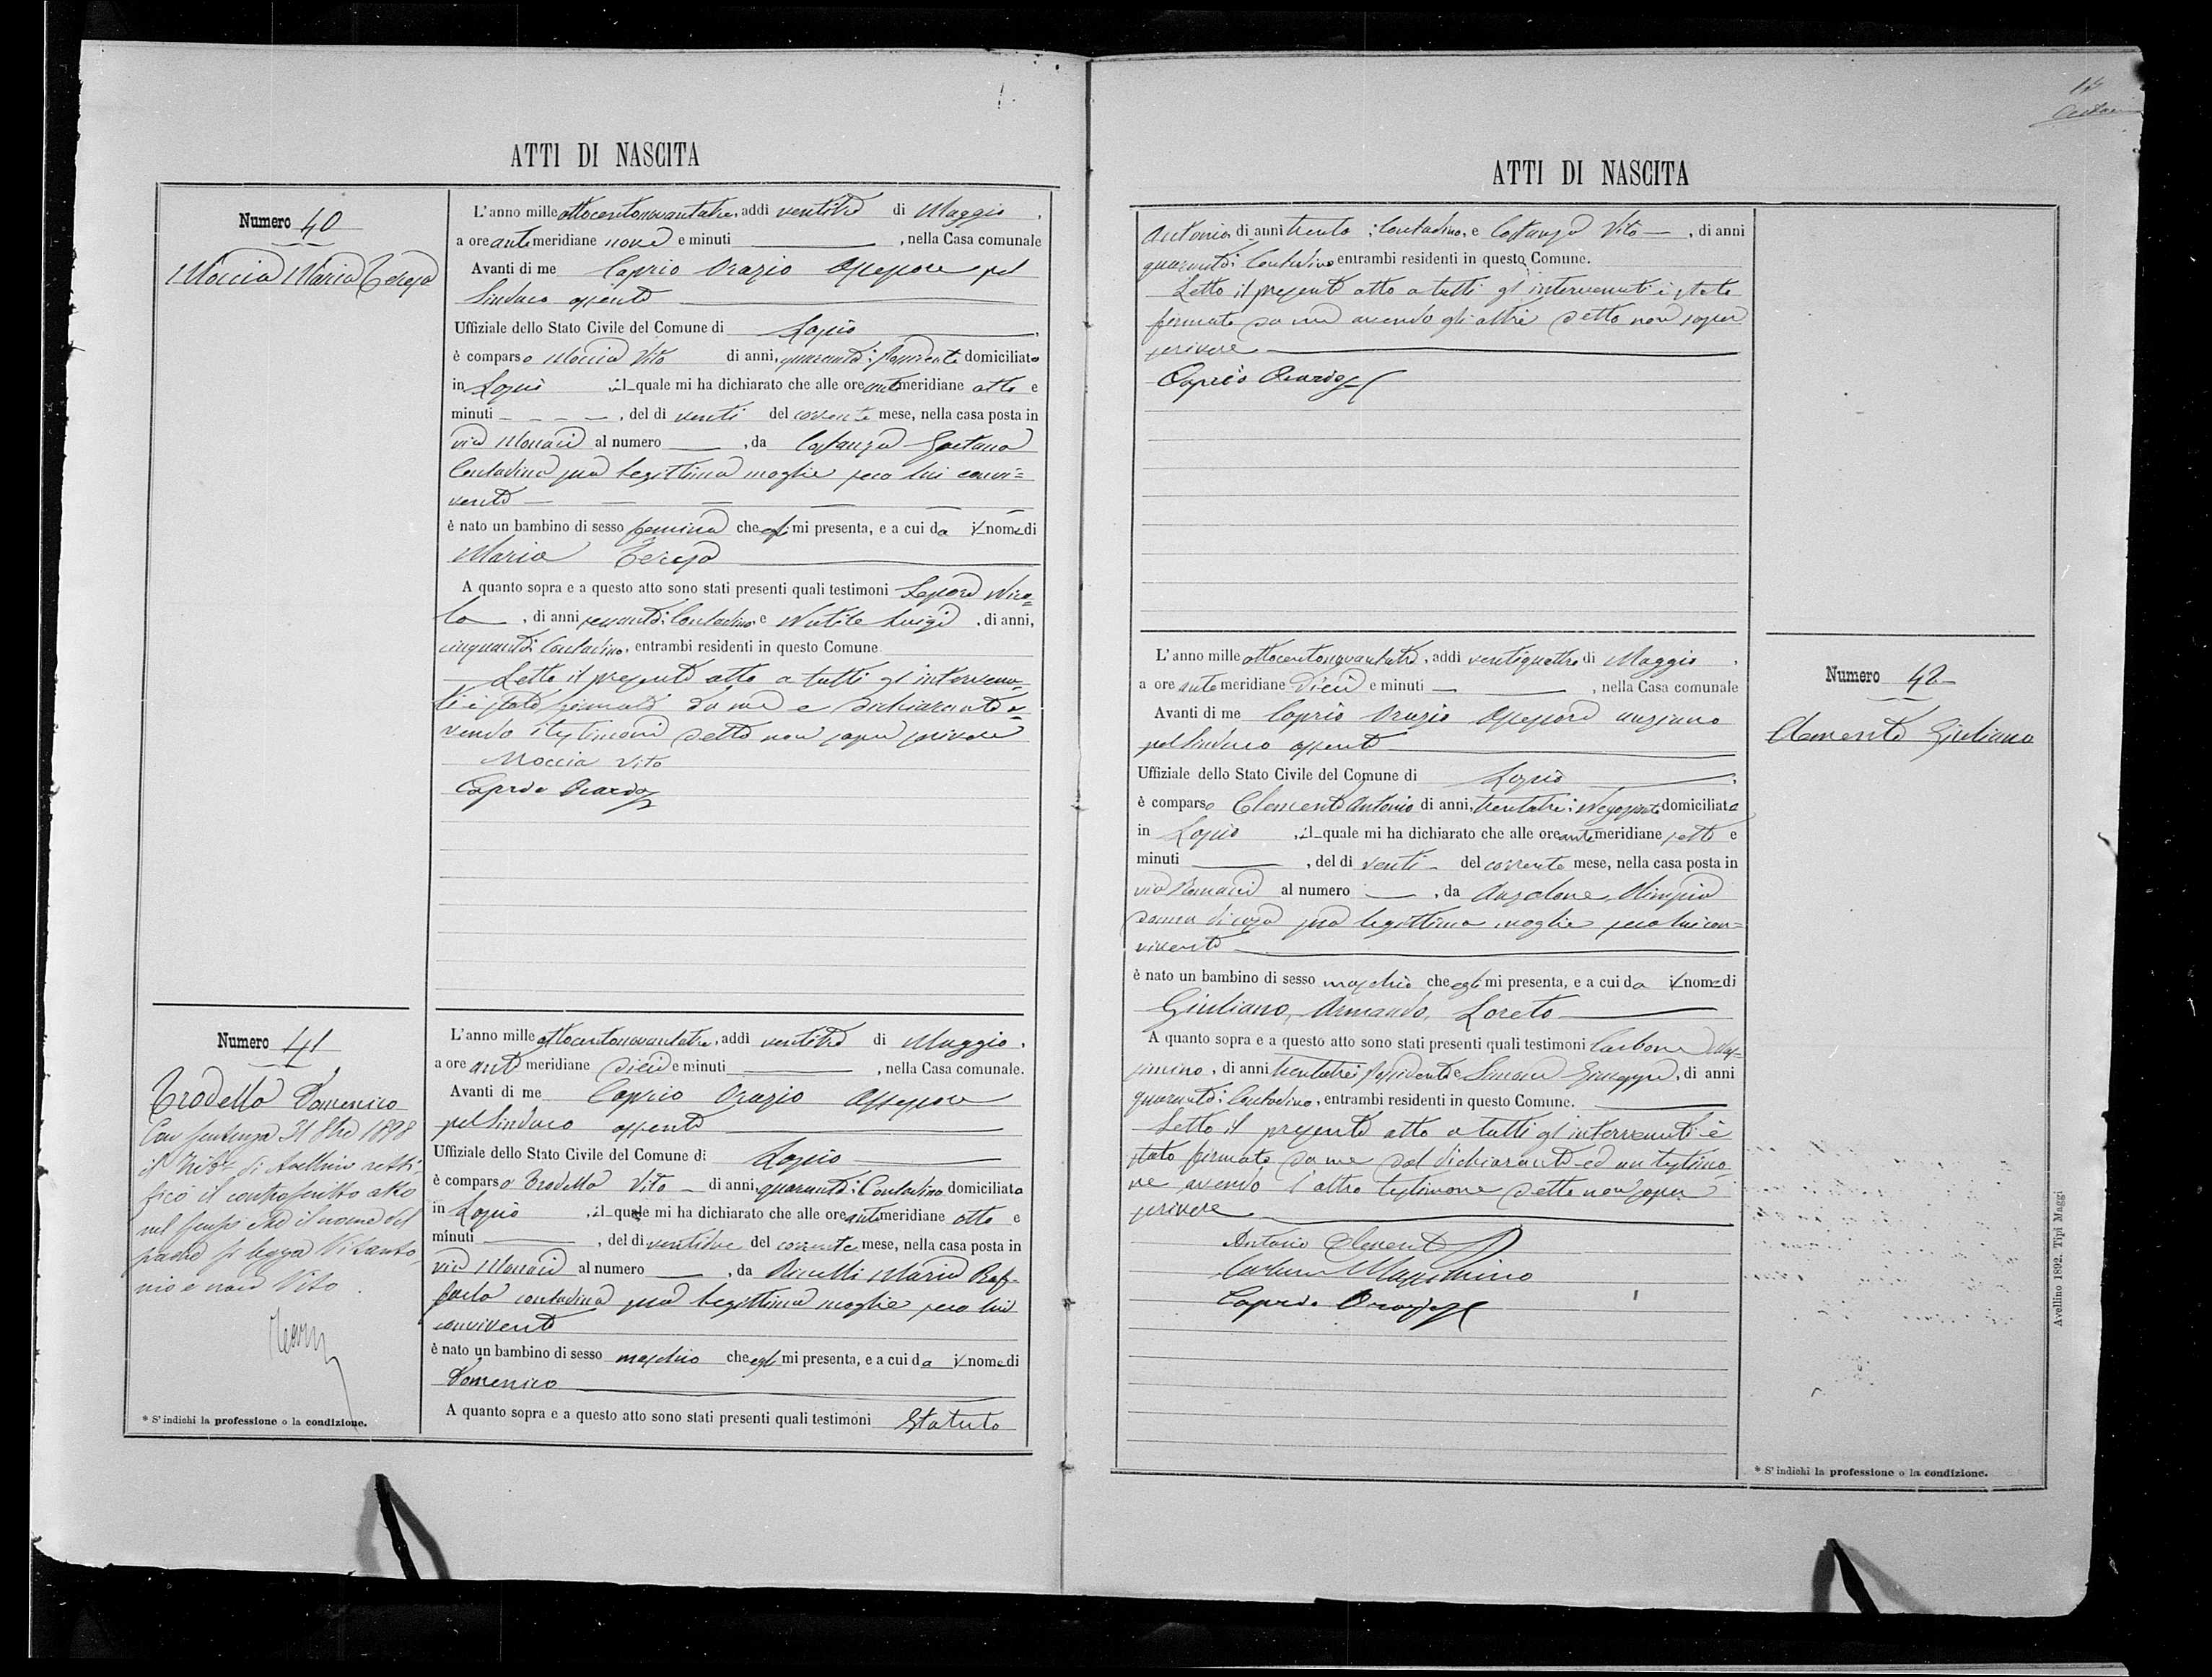 ATTI DI NASCITA
Numero 40
Moccia Maria Teresa
L'anno mille ottocentonovantatre, addi ventitre di Maggio,
a ore antemeridiane nove e minuti , nella Casa comunale
Avanti di me Caprio Orazio Assessore pel
Sindaco assente
Uffiziale dello Stato Civile del Comune di Lapio,
è comparso Moccia Vito di anni, quaranta: domiciliato
in Lapio il quale mi ha dichiarato che alle ore antemeridiane otto e
minuti , del di venti del corrente mese, nella casa posta in
via Monaci al numero , da Costanza Gaetana
Contadina sua legittima moglie seco lui convi=
vente
è nato un bambino di sesso femina che egli mi presenta, e a cui da il nome di
Maria Teresa
A quanto sopra e a questo atto sono stati presenti quali testimoni Lepore Nico=
la , di anni sessanta: Contadino e Luigi , di anni,
cinquanta: Contadino, entrambi residenti in questo Comune
Letto il presente atto a tutti gl'intervenu-
ti è stato firmato da me e dichiarante a-
vendo i testimoni detto non saper scrivere
Moccia Vito
Caprio Orazio
Numero 41
Trodella Domenico
Con sentenza 31 8bre 1898
il Trib.le di Avellino retti-
ficò il controscritto atto
nel senso che il nome del
padre si legga Vitanto-
nio e non Vito.
* S'indichi la professione o la condizione.
L'anno mille ottocentonovantatre, addi ventitre di Maggio,
a ore antemeridiane dieci e minuti , nella Casa comunale.
Avanti di me Caprio Orazio Assessore
pel Sindaco assente
Uffiziale dello Stato Civile del Comune di Lapio
è comparso Trodella Vito di anni quaranta: Contadino domiciliato
in Lapio , il quale mi ha dichiarato che alle ore antemeridiane otto e
minuti , del di ventidue del corrente mese, nella casa posta in
via Monaci al numero , da Maria Raf-
faela contadina sua legittima moglie seco lui
convivente
è nato un bambino di sesso maschio che egli mi presenta, e a cui da il nome di
Domenico
A quanto sopra e a questo atto sono stati presenti quali testimoni Statuto
ATTI DI NASCITA
Antonio di anni trenta: Contadino, e Costanza Vito , di anni
quaranta: Contadino entrambi residenti in questo Comune.
Letto il presente atto a tutti gl'intervenuti è stato
firmato da me avendo gli altri detto non saper
scrivere
Caprio Orazio
L'anno mille ottocentonovantatre, addi ventiquattro di Maggio,
a ore antemeridiane dieci e minuti , nella Casa comunale
Avanti di me Caprio Orazio Assessore anziano
pel Sindaco assente
Uffiziale dello Stato Civile del Comune di Lapio.
è comparso Clemente Antonio di anni, trentatre: Negoziante domiciliato
in Lapio , il quale mi ha dichiarato che alle ore antemeridiane sette e
minuti , del di venti del corrente mese, nella casa posta in
via al numero , da Anzalone Olimpia
donna di casa sua legittima moglie seco lui con=
vivente
è nato un bambino di sesso maschio che egli mi presenta, e a cui da il nome di
Giuliano, Armando, Loreto
A quanto sopra e a questo atto sono stati presenti quali testimoni Carbone Mas-
simino, di anni trentatre: Possidente e Simone Giuseppe, di anni
quaranta: Contadino, entrambi residenti in questo Comune.
Letto il presente atto a tutti gl'intervenuti è
stato firmato da me dal dichiarante ed un testimo-
ne avendo l'altro testimone detto non saper
scrivere
Antonio Clemente
Carbone Massimino
Caprio Orazio
Numero 42
Clemente Giuliano
Avellino 1892. Tipi Maggi
* S'indichi la professione o la condizione.